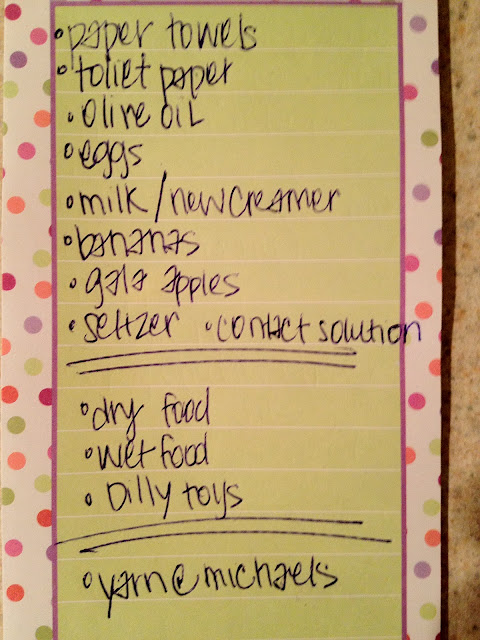 •paper towels
•toliet paper
•olive oil
•eggs
•milk/new creamer
•bananas
•gala apples
•seltzer •contact solution
•dry food
•wet food
•Dilly toys
•yarn@michaels